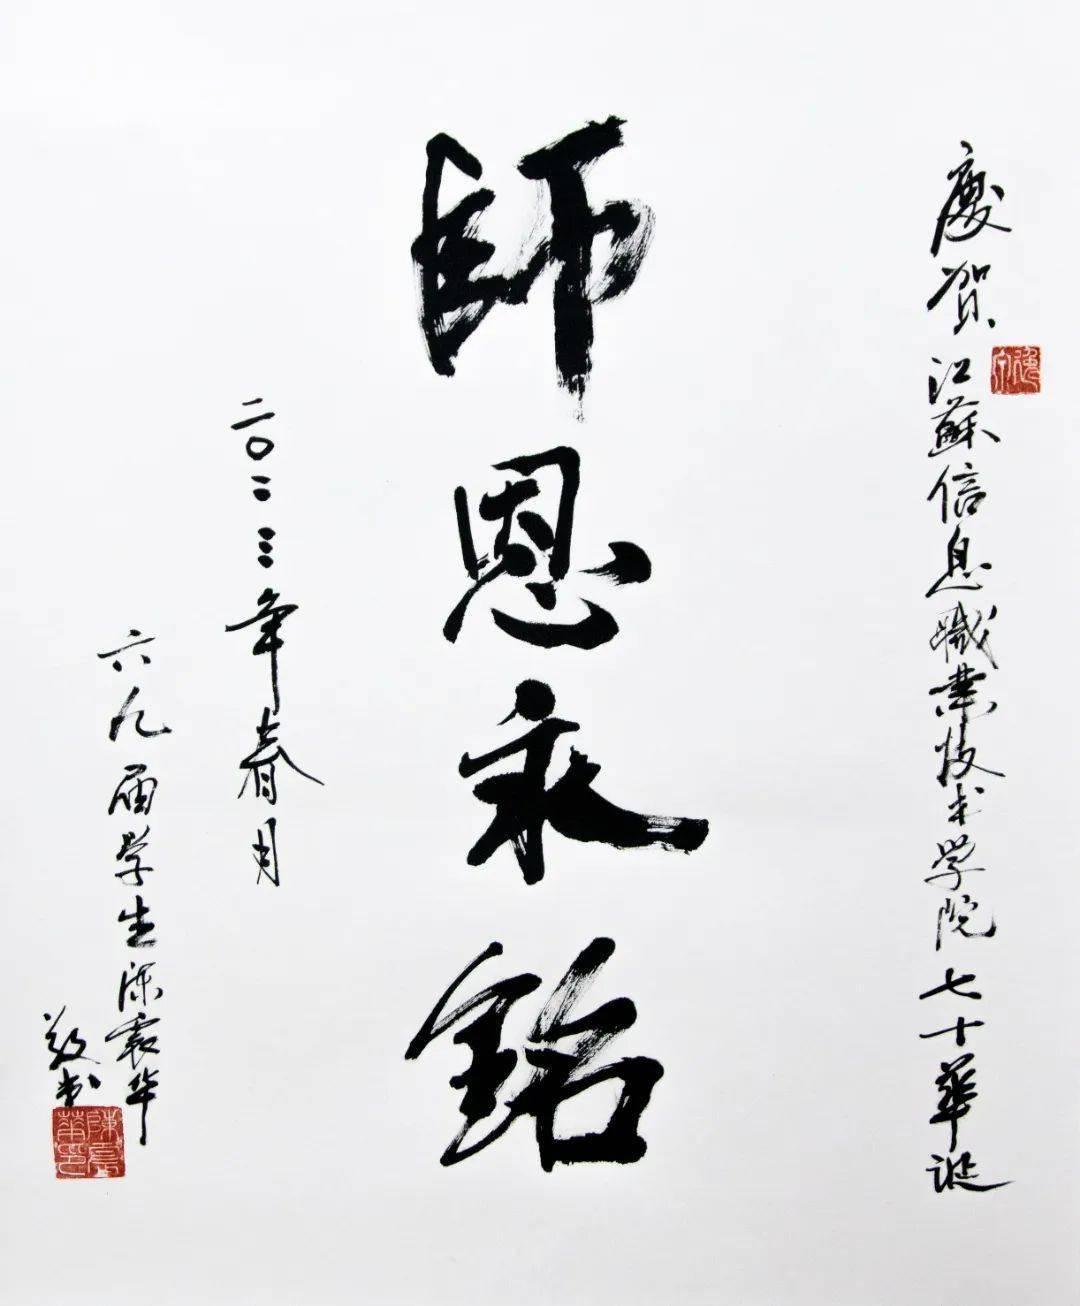 慶贺江蘇信息職業技术学院七十華诞
師恩永銘
二〇二三年春月
六九届学生陈震华
敬书